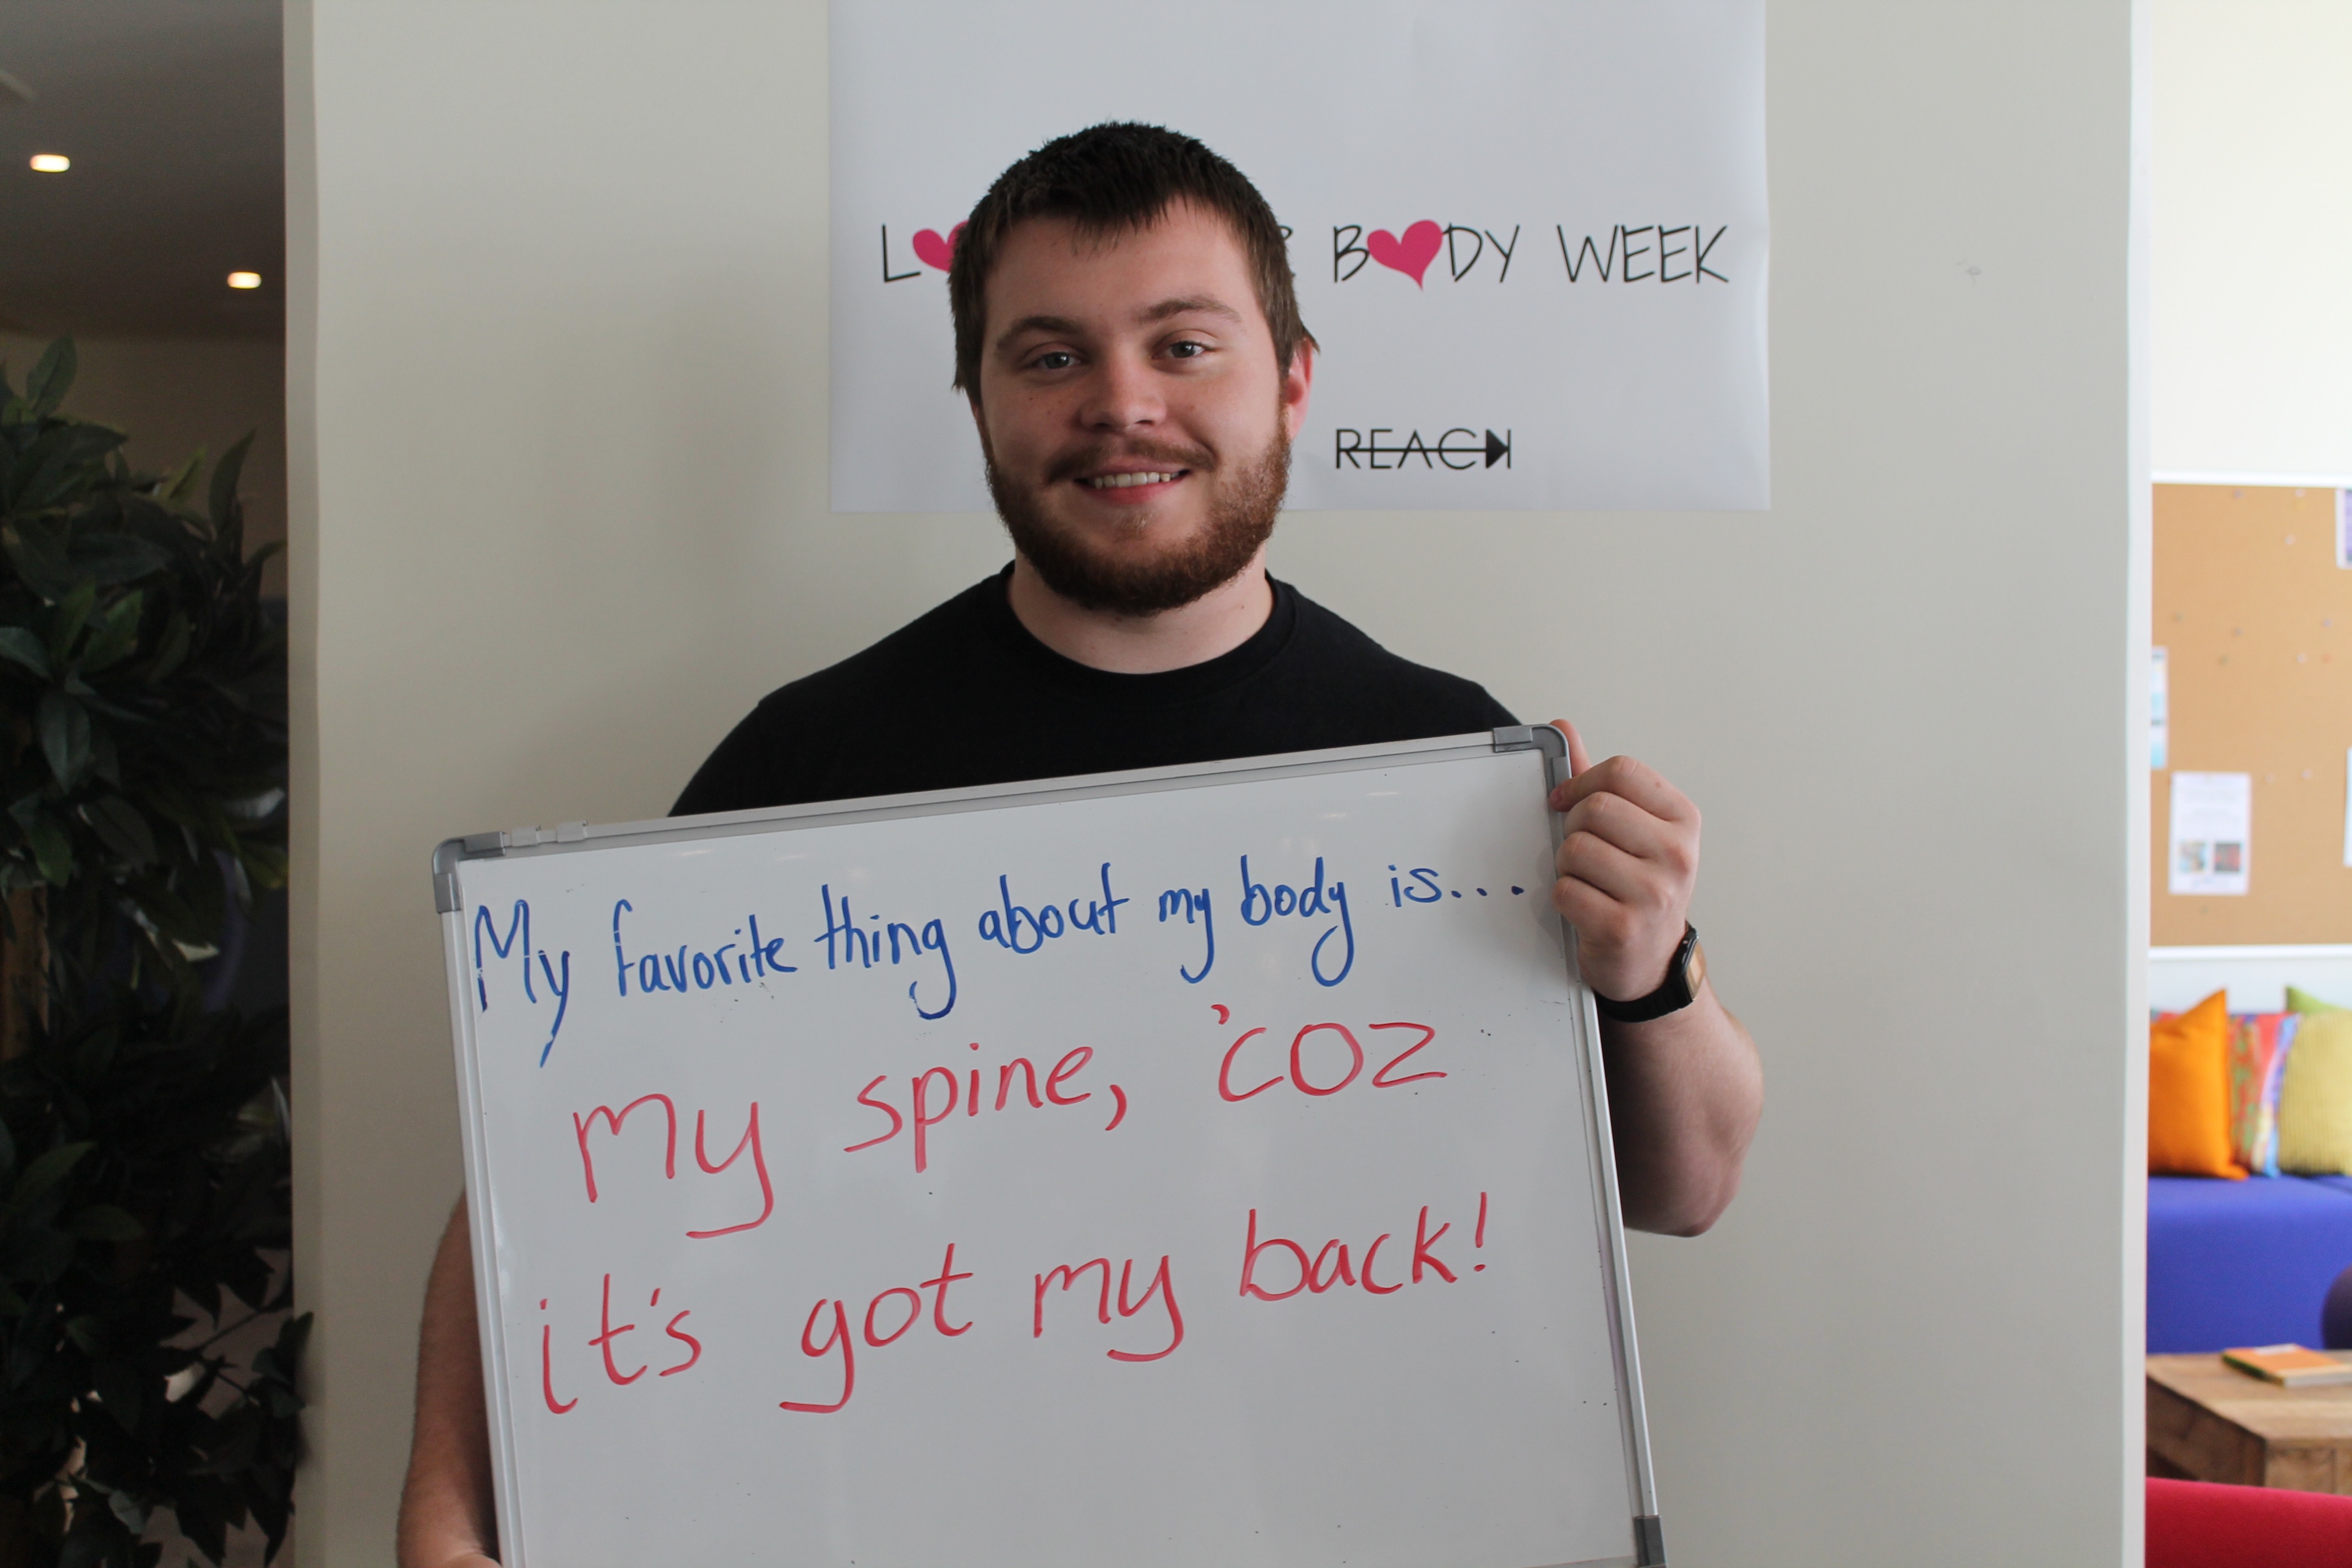 L BODY WEEK
REACH
My favorite thing about my body is...
my spine, 'coz
it's got my back!